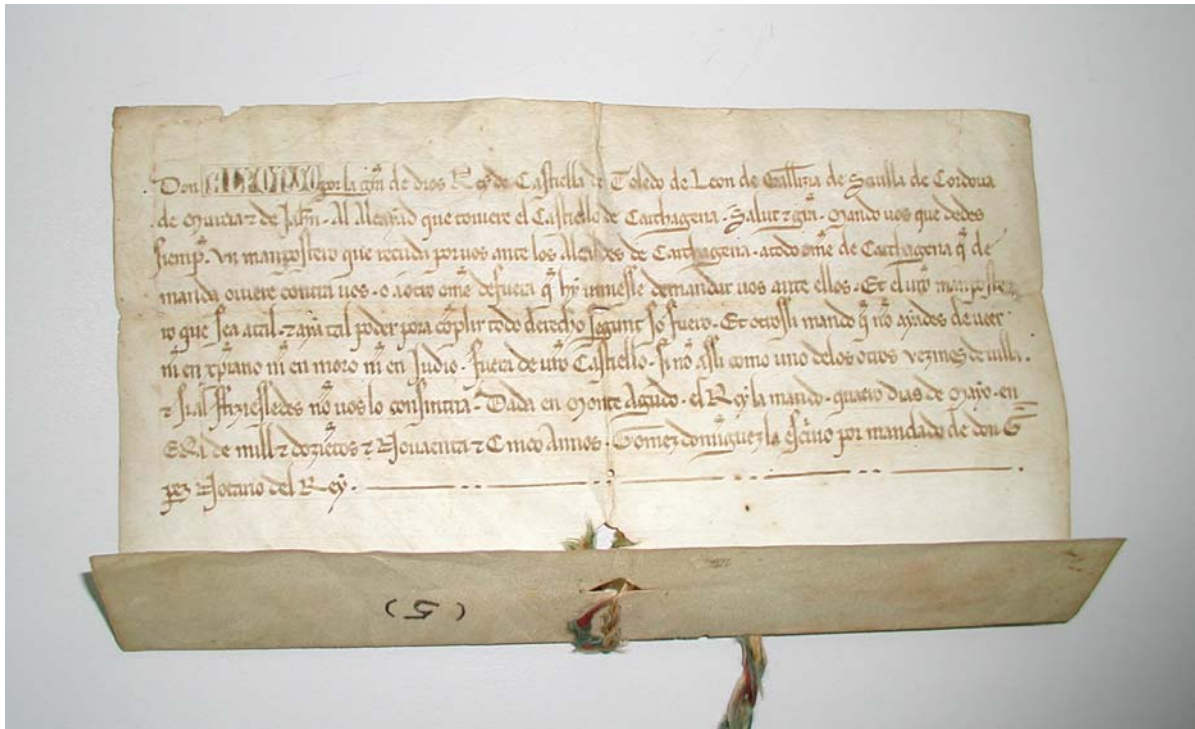 Don ALFONSO por la gra de dios Rey de Castiella de Toledo de Leon de Gallizia de Seuilla de Cordoua
de Murcia ⁊ de Jahen · Al Alcayad que touiere el Castiello de Carthagena · Salut ⁊ gra · Mando uos que dedes
siempre · Vn manpostero que recuda por uos ante los Alcaldes de Carthagena · a todo ome de Carthagena q̃ de
manda ouiere contra uos · o a otro ome de fuera q̃ hy uiniesse demandar uos ante ellos · Et el uro manposte
ro que sea atal · ⁊ aya tal poder pora cõplir todo derecho segunt so fuero · Et otrossi mando q̃ nõ ayades de ueer
nĩ en xp̃iano nĩ en moro nĩ en Judio · fuera de uro Castiello · si nõ assi como uno delos otros vezinos de uilla ·
⁊ si al ffiziessedes nõ uos lo consintria · Dada en Monte Agudo · el Rey la mando · quatro dias de Mayo · en
ERa de mill ⁊ dozietos ⁊ Nouaenta ⁊ Cinco Annos · Gomez dominguez la escriuo por mandado de don G̃
perez Notario del Rey ·
(5)